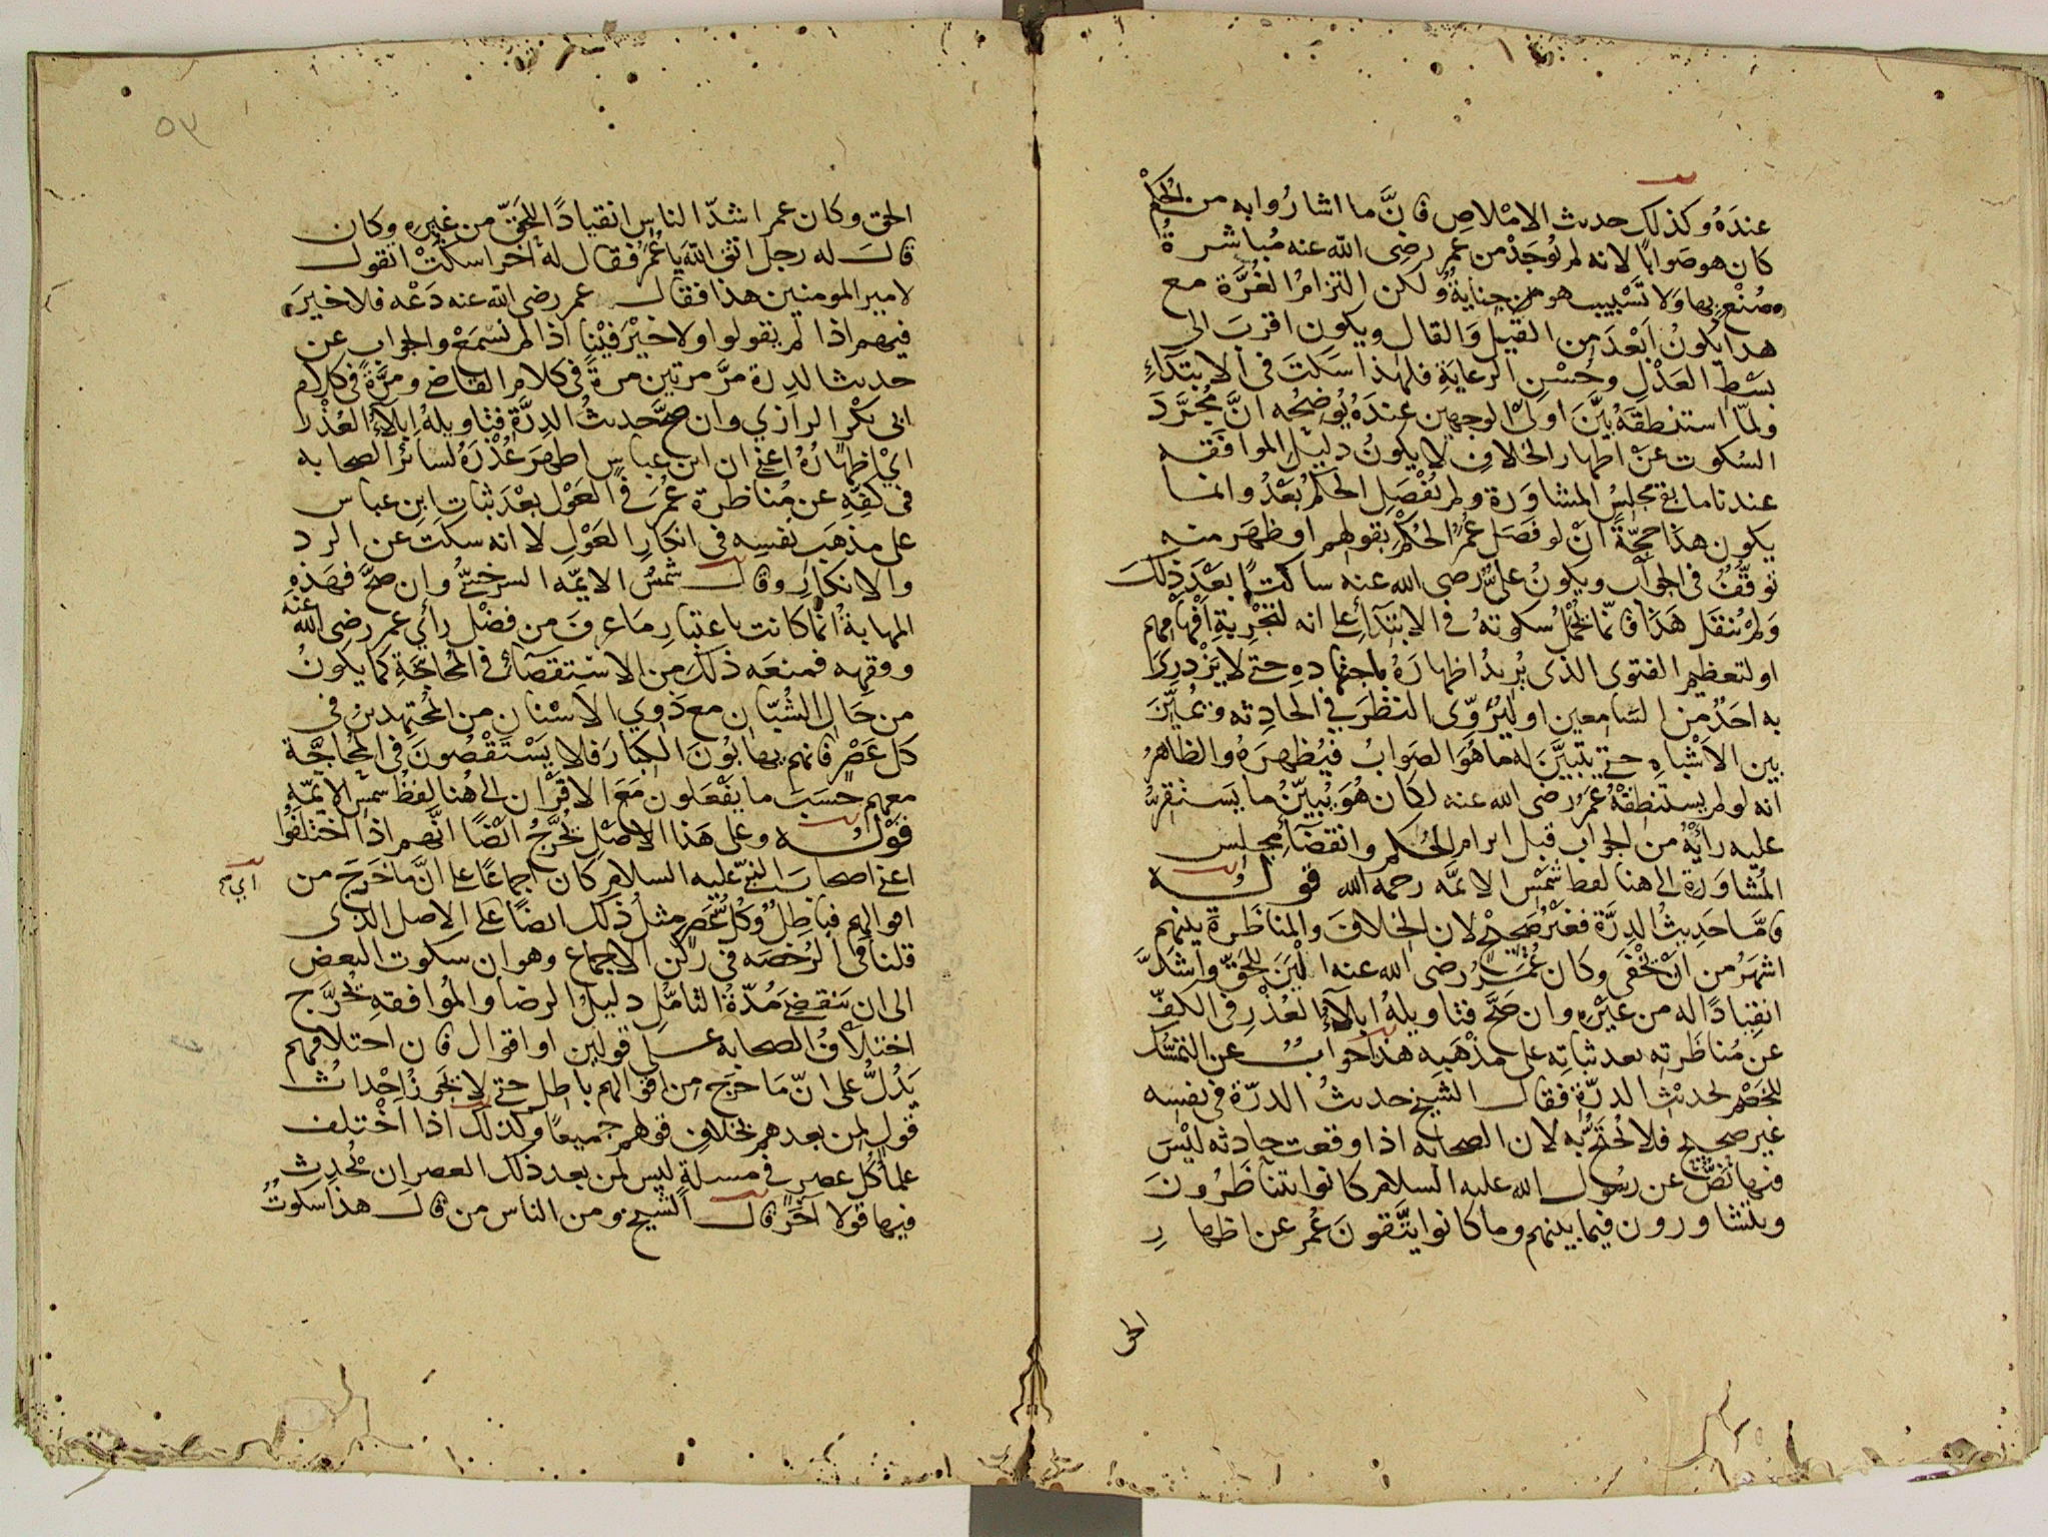 عنده وكذلك حديث الامْلاصِ فانَّ ما اشاروا به من الحكم
كان هو صَوابًا لانه لم يُوجَدْ من عمر رضى الله عنه مُباشرةُ
صُنْعٍ بها وَلا تَسْبيب هو من جنايةٌ ولكن التزامُ الغُرَّة مع
هذا يكونُ اَبْعَدَ من القيل وَالقال ويكون اقربَ الى
بَسْطِ العَدْلِ وحُسْنِ الرعايَةِ فلهذا سَكَتَ فى الابتدآءِ
ولمّا استنطقَهُ بيَّنَ اولىَ الوجهين عندَهُ يُوضحُه انَّ مُجرَّدَ
السُكوت عنْ اظهار الخلافِ لا يكونُ دليل الموافقه
عندنا ما بقى مجلسُ المشاوَرة ولم يُفْصَلِ الحكمُ بَعْدُ وانما
يكون هذا حجّةً انْ لو فصَلَ عُمرُ الحُكْمَ بقولهم او ظهَرَ منه
توقُّفٌ فى الجواب ويكونُ علىٌّ رضى الله عنه ساكتًا بعْدَ ذلكَ
وَلم يُنقَل هَذا فانّما يُحْمَلُ سُكوتهُ فى الابتدآءِ على انه لتجْربةِ اَفْهامهم
او لتعظيم الفتوى الذى يُريدُ اظهارَهُ باجتهاده حتى لا يَزْدرى
به احَدٌ من السّامعين او ليُرَوِّى النظَرَ فى الحادِثه ويُميّزَ
بين الاَشْباهِ حتى يتبيَّنَ له ما هُوَ الصَوابُ فيُظهرَهُ والظاهرُ
انه لو لم يستنطقْهُ عُمَرُ رضى الله عنه لكان هُوَ يُبيّنُ ما يَستقرُّ
عليه رأيُهُ من الجواب قبل ابرام الحُكم وانقضآءِ مجلِس
المُشاوَرة الى هنا لفظ شمْس الائمَّه رحمه الله قوله
فامَّا حَدِيثُ الدِرَّة فغيْرُ صَحيْحٍ لان الخلافَ والمناظَرة بينهم
اشهَرُ من انْ يَخْفَى وكان عُمَرُ رضى الله عنه اَلْيَنَ للحَقّ واَشَدَّ
انقِيادًا له من غيْرِهِ وان صَحَّ فتاويلهُ ابلآءُ العُذْرِ فى الكَفِّ
عن مُناظَرتِه بعد ثباتِهِ على مذْهَبِه هذا جوابٌ عن التمسّك
للخَصْم بحديْثِ الدرّة فقال الشيخ حديثُ الدرّة فى نفسه
غير صحيح فلا يُحْتَجُّ به لان الصحابه اذا وقعت حادثه ليْسَ
فيها نَصٌّ عن رسُول الله عليه السلام كانوا يتَناظَرُونَ
ويتشاورون فيما بينهم وما كانوا يتَّقونَ عُمر عن اظهارِ
الحق
٥٣
الحق وكان عمر اشدّ الناس انقيادًا للحَقّ من غيره وكان
قال له رجل اتق الله يا عُمَرُ فقال لهُ اخر اسكُتْ اتقول
لامير المومنين هذا فقال عمر رضى الله عنه دَعْه فلا خيرَ
فيهم اذا لم يقولوا ولا خيْرَ فيْنا اذا لم نَسْمَعْ والجواب عن
حديث الدرة مرَّ مرتين مرةً فى كلام القاضى ومرَّةً فى كلام
ابى بكرٍ الرازي وان صحَّ حديثُ الدِرَّة فتاويلهُ ابلآءُ العُذْر
ايْ اظهارُهُ اعنى ان ابن عباس اظهرَ عُذْرَهُ لسائر الصحابه
فى كفِّهِ عن مُناظرة عُمَرَ فى العَوْل بعْدَ ثبات ابن عباس
على مذهَب نفسِه فى انكارِ العَوْلِ لا انه سكتَ عن الرد
والانكارِ وقال شمسُ الايمّه السرخسىُّ وان صَحَّ فهَذِهِ
المهابةُ انّما كانت باعتبارِ ما عرفَ من فضْل رأي عمر رضى الله عنه
وفقهِه فمنعَه ذلكَ من الاستقصآءِ فى المُحاجّةِ كما يكونُ
من حَال الشُبّان مع ذَوي الاسْنان من المُجتهدينَ فى
كل عَصْرٍ فانهم يهابُونَ الكبارَ فلا يَسْتَقْصُونَ فى المُحاجَّة
معهم حسَبَ ما يفْعَلونَ مَعَ الاقْرَان الى هُنا لفظُ شمس الايمّه
قوله وعلى هَذا الاصْلِ يُخَرَّجُ ايْضًا انَّهم اذا اختلفُوا
اعنى اصحابَ النبىّ عليه السلام كان اجماعًا على انَّ ما خَرَجَ من
اي
اقوالهم فباطلٌ وكُلُّ عَصْرٍ مثلُ ذلك ايضًا على الاصل الذى
قلنا فى الرُخصَه فى ركْن الاجماع وهو ان سكوت البعض
الى ان ينقضىَ مُدّةُ التامّلِ دليلُ الرضا والمُوافقهِ يُخرَّج
اختلاَفُ الصحابه على قولين او اقوال فان اختلافهم
يَدُلُّ على انّ مَا خرَج من اقوالهم باطل حتى لا يَجُوزُ اِحْداثُ
قول لمن بعدهم بخلافِ قولهم جميعًا وكذلك اذا اخْتلف
علمآءُ كُلّ عصرٍ فى مسلةٍ ليس لمن بعد ذلك العصر ان يُحْدِث
فيها قولا آخرَ قال الشيخ ومن الناس من قال هذا سكوتٌ